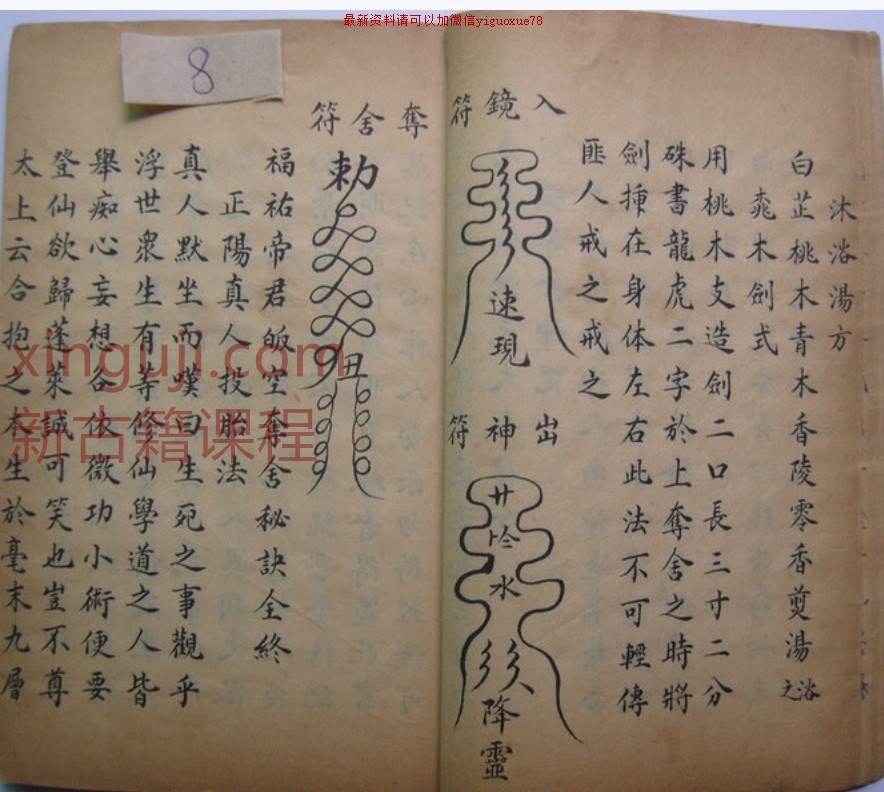 最新资料请可以加微信yiguoxue78
8
沐浴湯方
白芷桃木青木香陵零香煎湯浴之
桃木劍式
用桃木支造劍二口長三寸二分
硃書龍虎二字於上奪舍之時將
劍揷在身体左右此法不可輕傳
匪人戒之戒之
入鏡符
速現
出神符
水
降靈
奪舍符
勅
丑
福祐帝君皈空奪舍秘訣全終
正陽真人投胎法
真人默坐而嘆曰生死之事觀乎
浮世衆生有等修仙學道之人皆
舉痴心妄想谷依微功小術便要
登仙欲歸蓬萊誠可笑也豈不尊
太上云合抱之木生於毫末九層
xinguji.com
新古籍课程